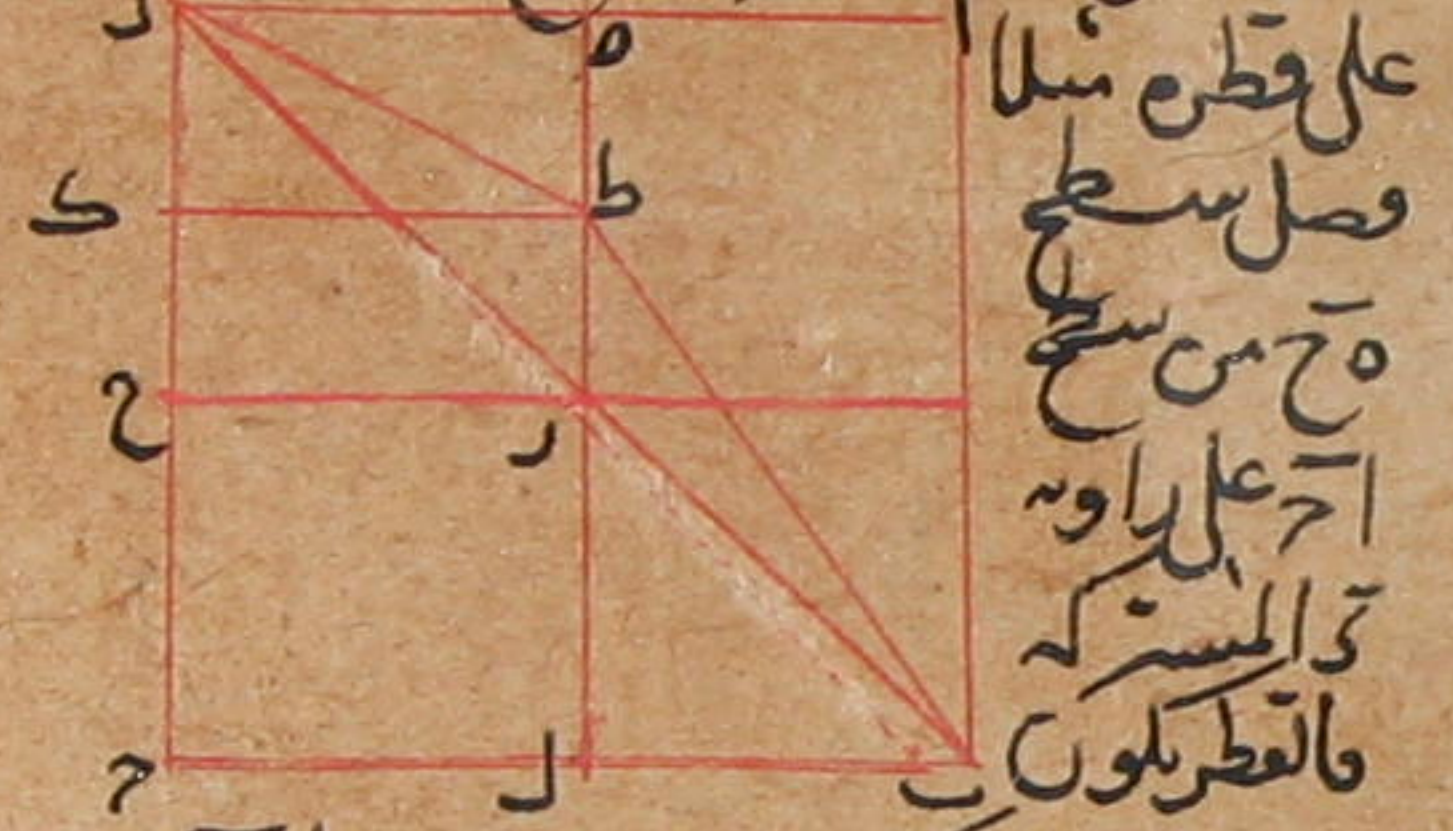 على قطره مثلا
فصل سطح
ه ح من سطح
ا ح على زاوية
د المشتركة
فالقطر يكون
د
ه
ا
ط
ك
ح
ر
ح
ل
ب